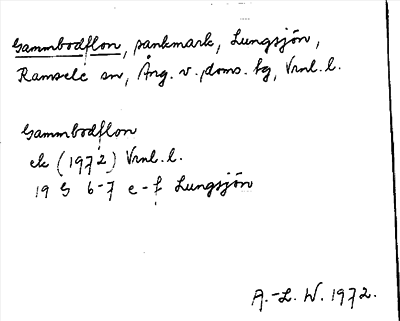 Gammbodflon, sankmark, Lungsjön,
Ramsele sn, Ång. v. doms. bg, Vrnl. l.
Gammbodflon
ek (1972) Vrnl. l.
19 G 6-7 e-f Lungsjön
A.-L. W. 1972.